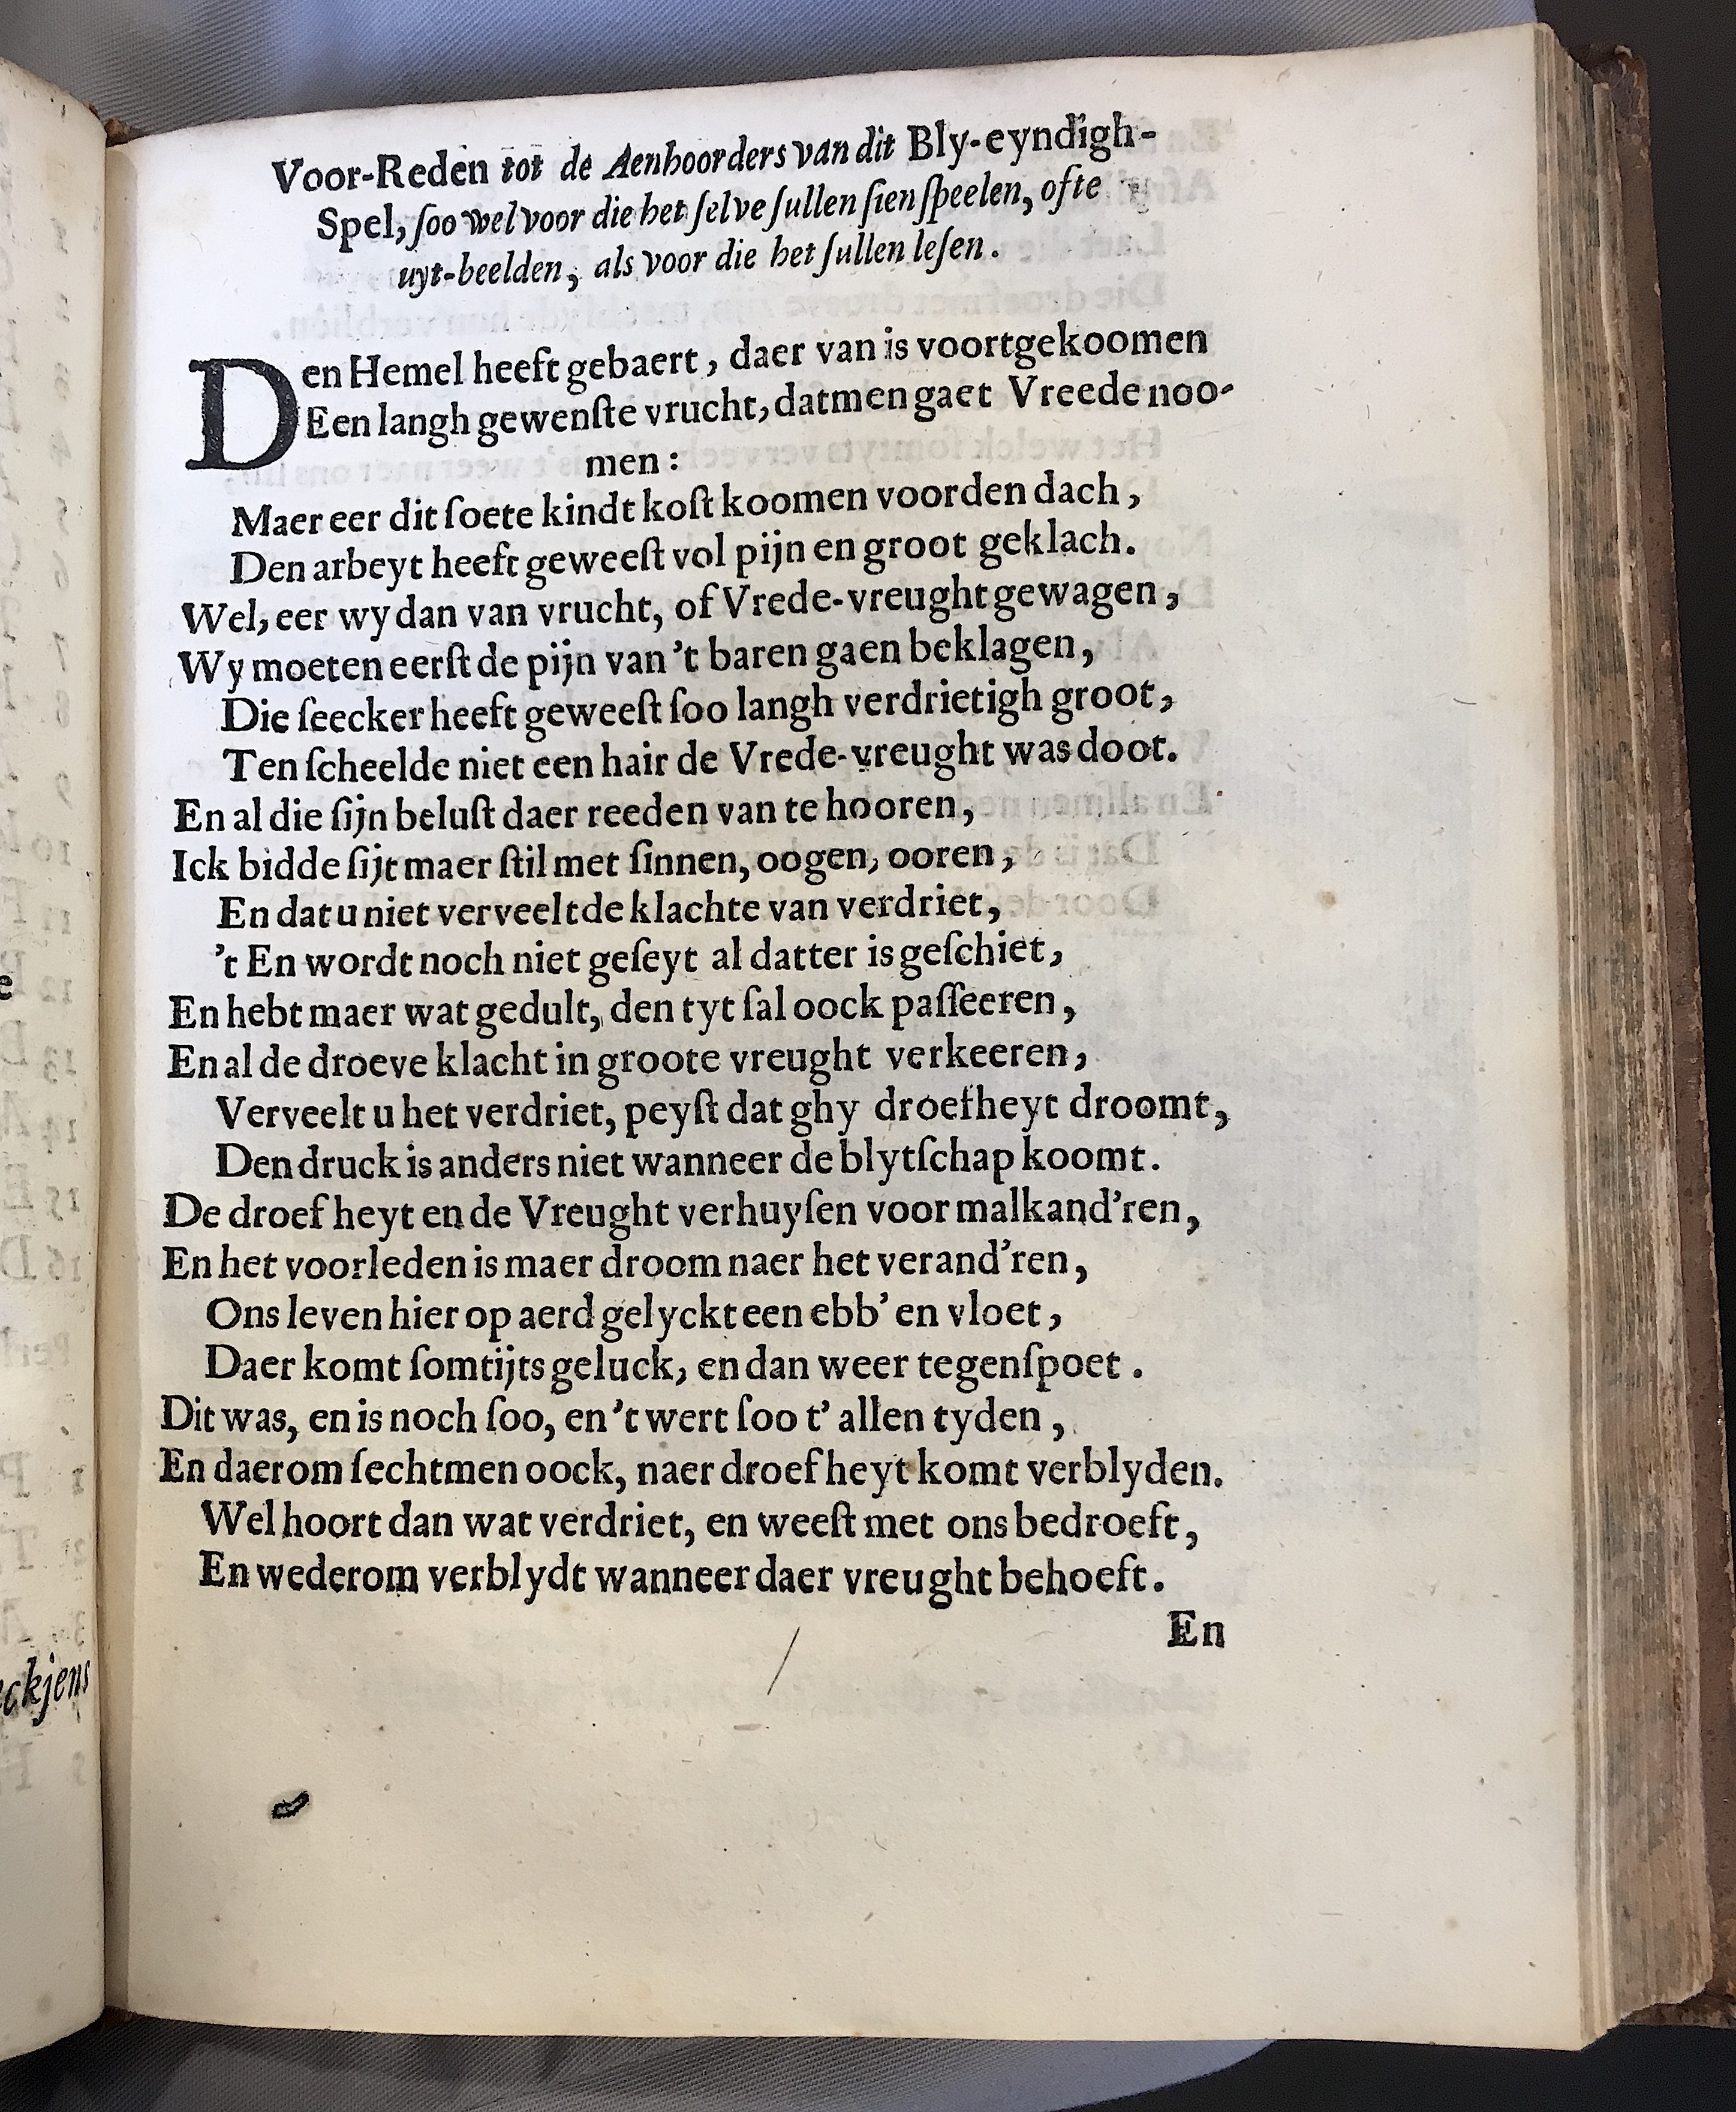 Voor-Reden tot de Aenhoorders van dit Bly-eyndigh-
Spel, ſoo wel voor die het ſelve ſullen ſien ſpeelen, ofte
uyt-beelden, als voor die het ſullen leſen.
Den Hemel heeft gebaert, daer van is voortgekoomen
Een langh gewenſte vrucht, datmen gaet Vreede noo-
men:
Maer eer dit ſoete kindt koſt koomen voorden dach,
Den arbeyt heeft geweeſt vol pijn en groot geklach.
Wel, eer wy dan van vrucht, of Vrede-vreught gewagen,
Wy moeten eerſt de pijn van 't baren gaen beklagen,
Die ſeecker heeft geweeſt ſoo langh verdrietigh groot,
Ten ſcheelde niet een hair de Vrede-vreught was doot.
En al die ſijn beluſt daer reeden van te hooren,
Ick bidde ſijt maer ſtil met ſinnen, oogen, ooren,
En dat u niet verveelt de klachte van verdriet,
't En wordt noch niet geſeyt al datter is geſchiet,
En hebt maer wat gedult, den tyt ſal oock paſſeeren,
En al de droeve klacht in groote vreught verkeeren,
Verveelt u het verdriet, peyſt dat ghy droefheyt droomt,
Den druck is anders niet wanneer de blytſchap koomt.
De droefheyt en de Vreught verhuyſen voor malkand'ren,
En het voorleden is maer droom naer het verand'ren,
Ons leven hier op aerd gelyckt een ebb' en vloet,
Daer komt ſomtijts geluck, en dan weer tegenſpoet.
Dit was, en is noch ſoo, en 't wert ſoo t' allen tyden,
En daerom ſechtmen oock, naer droefheyt komt verblyden.
Wel hoort dan wat verdriet, en weeſt met ons bedroeft,
En wederom verblydt wanneer daer vreught behoeft.
En